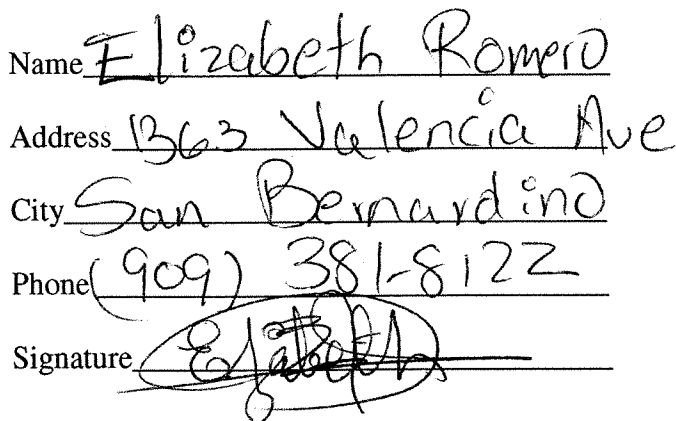 Name Elizabeth Romero
Address 1363 Valencia Ave
City San Bernardino
Phone (909) 381-8122
Signature Elizabeth